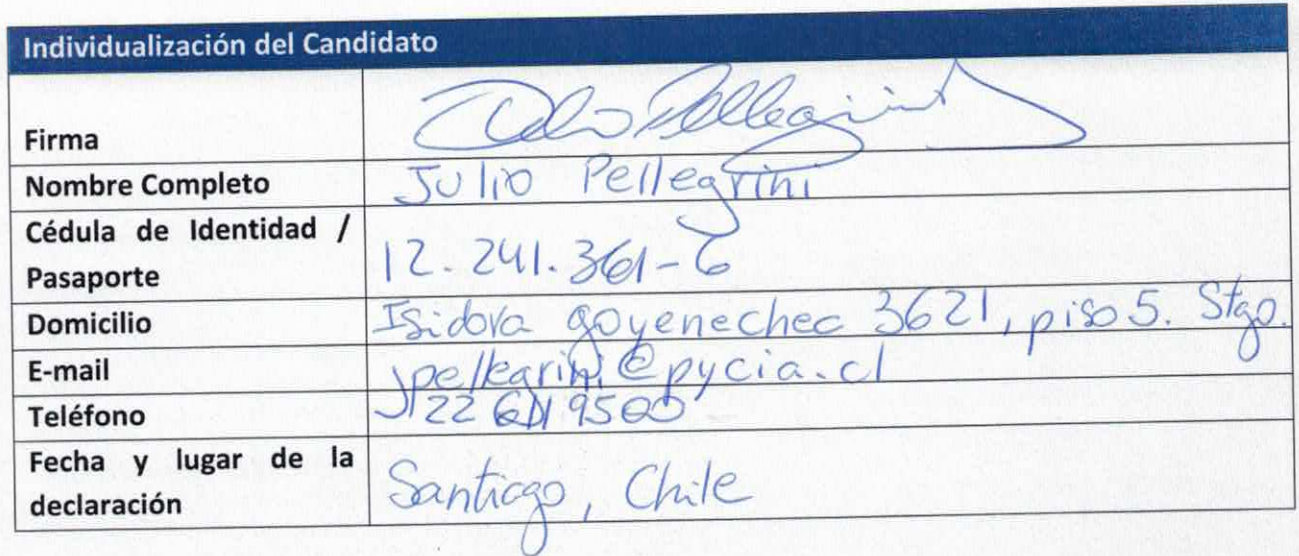 Individualización del Candidato
Firma Julio Pellegrini
Nombre Completo Julio Pellegrini
Cédula de Identidad /
Pasaporte 12.241.361-6
Domicilio Isidora goyenechec 3621, piso 5. Stgo.
E-mail jpellegrini@pycia.cl
Teléfono
Fecha y lugar de la
declaración Santiago, Chile